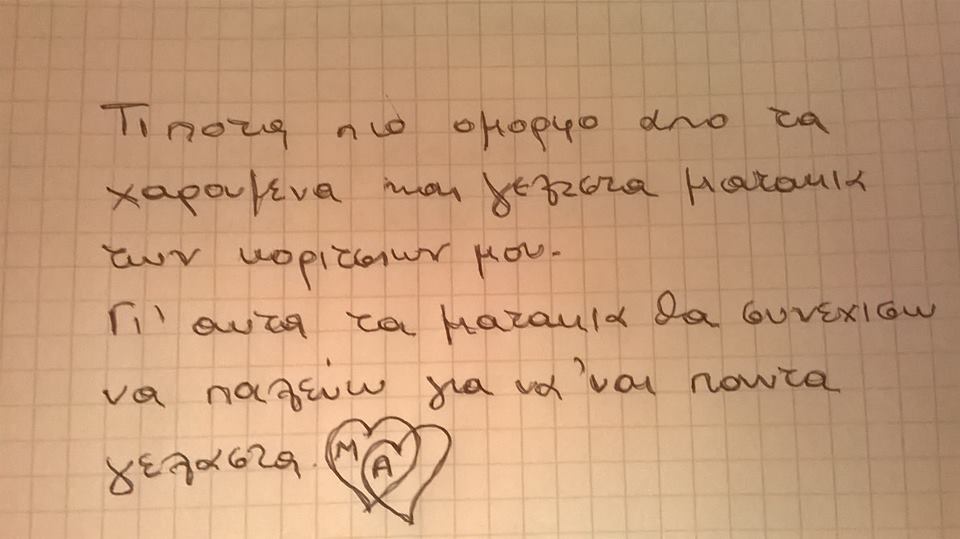 Τιποτα πιο ομορφο απο τα
χαρουμενα και γελαστα ματακια
των κοριτσιων μου.
Γι' αυτα τα ματακια θα συνεχισω
να παλεύω για να 'ναι παντα
γελαστα. Μ Α